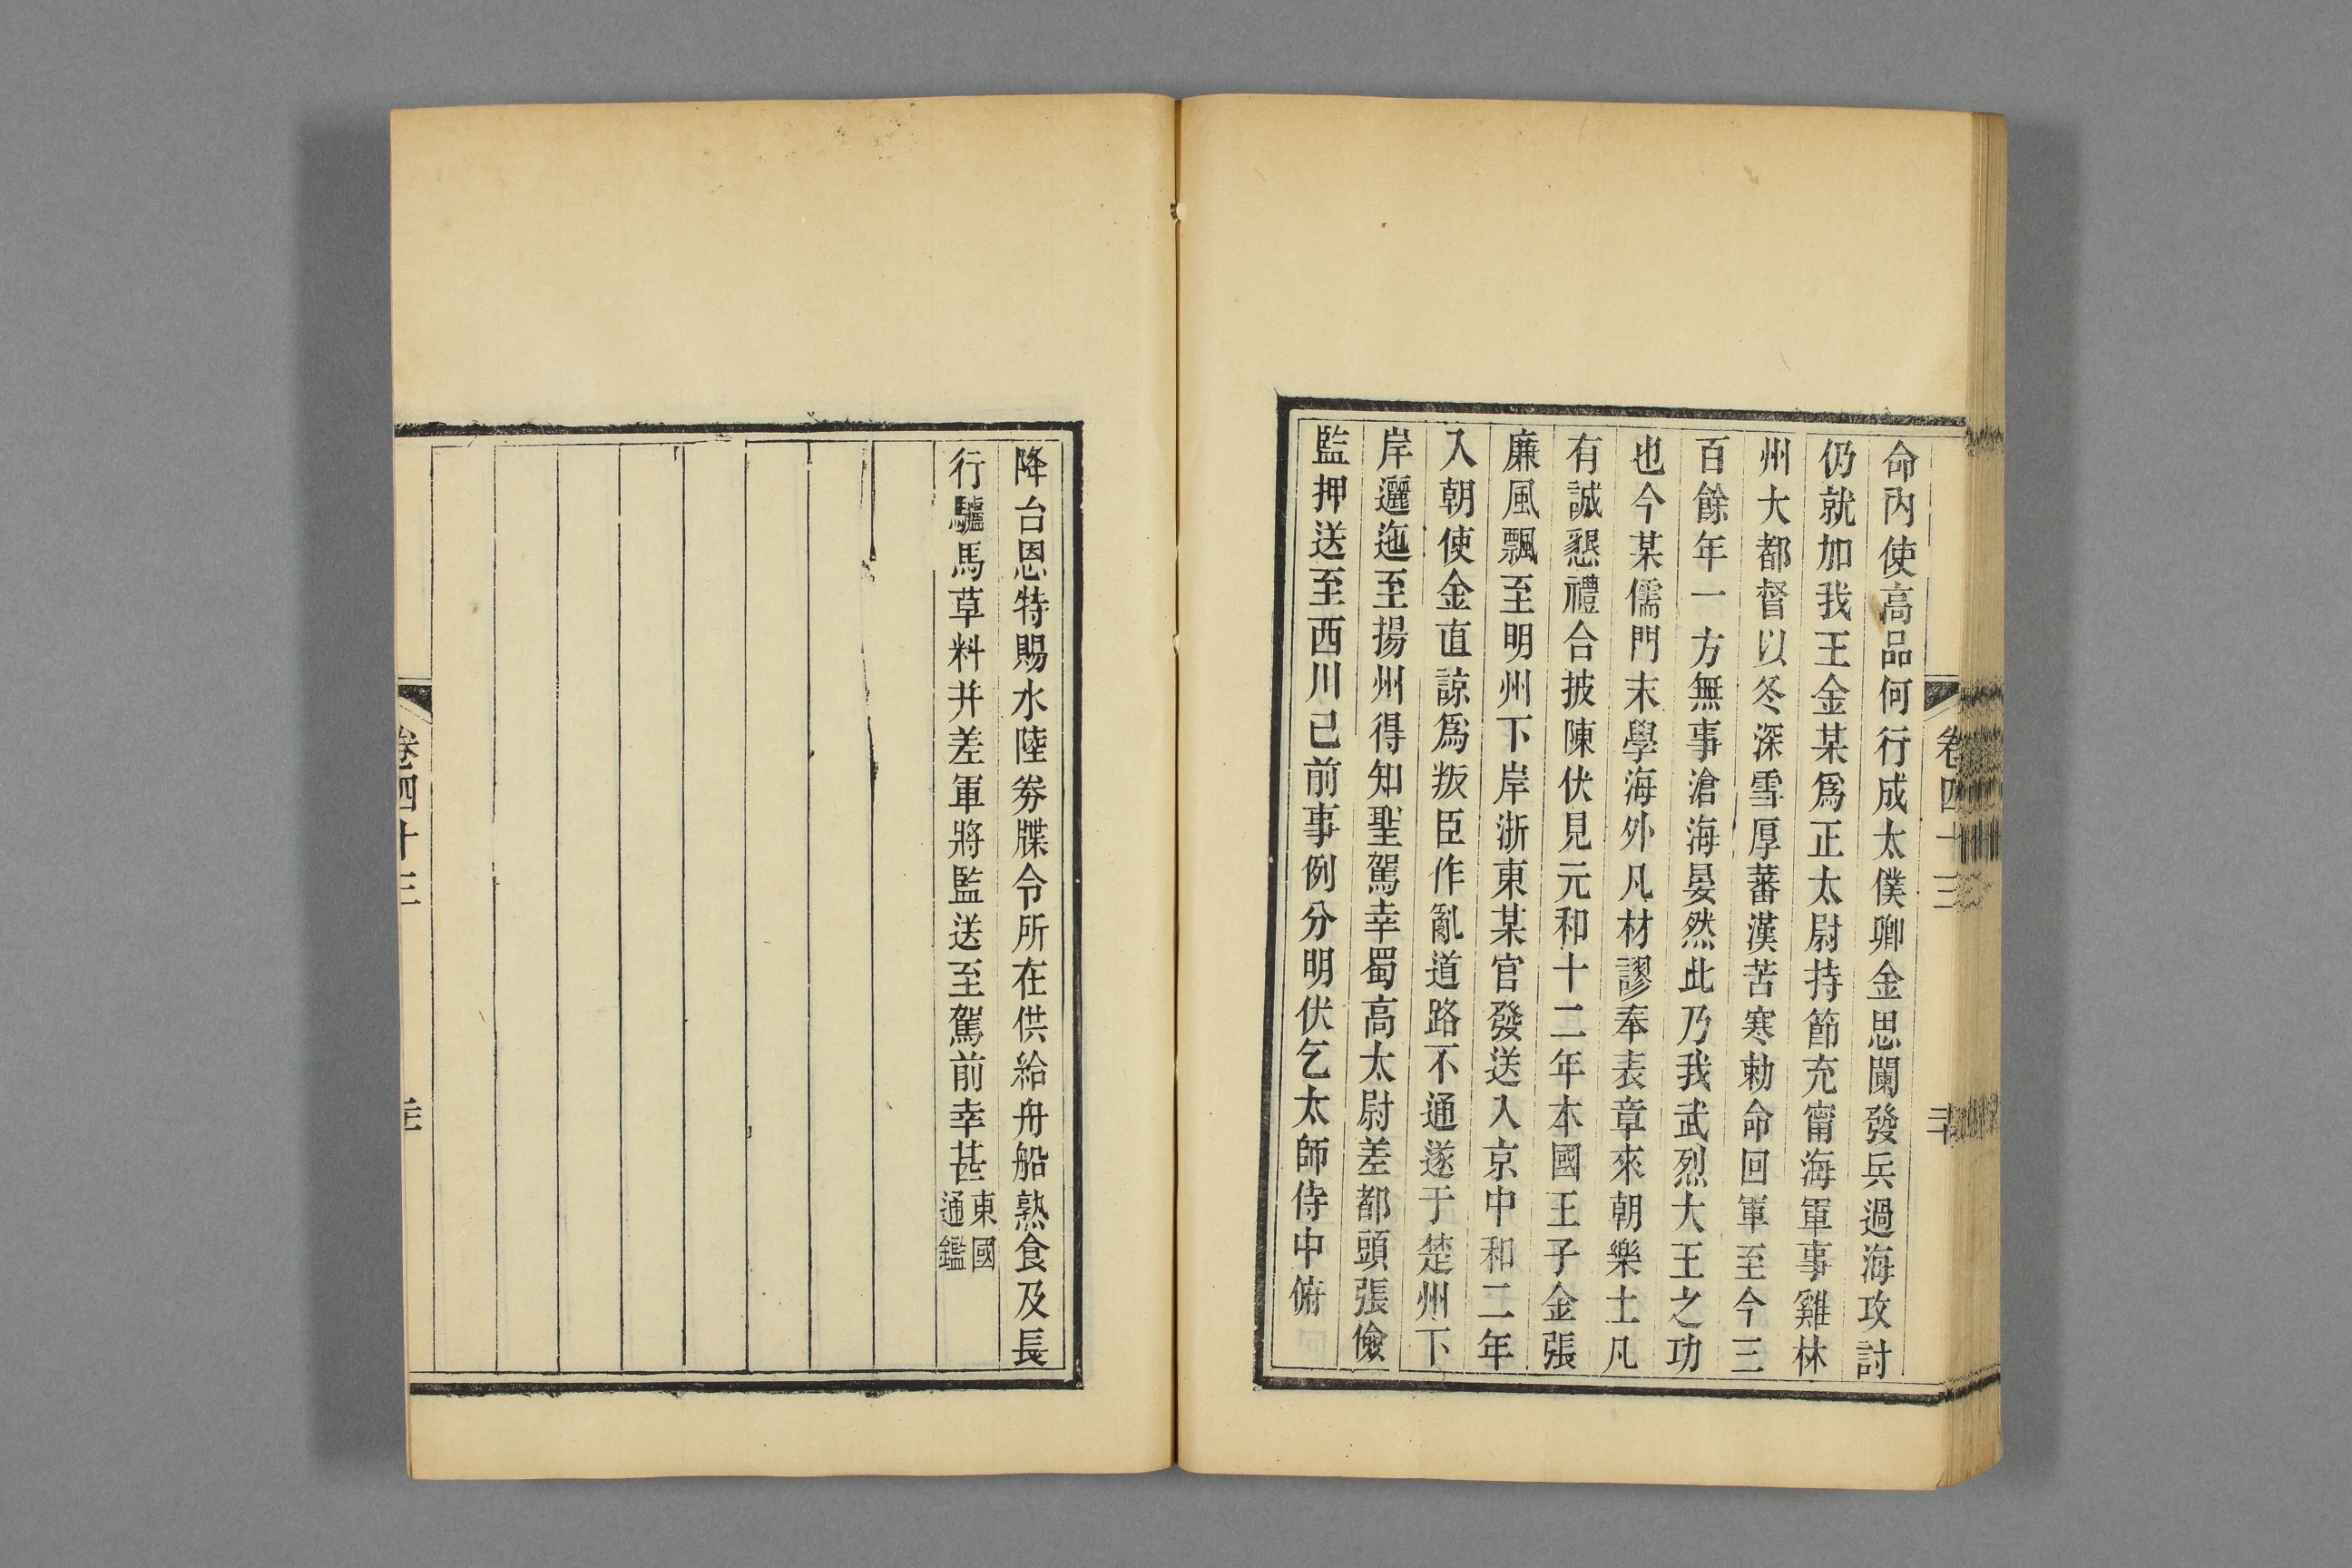 命內使高品何行成太僕卿金思蘭發兵過海攻討
仍就加我王金某爲正太尉持節充甯海軍事雞林
州大都督以冬深雪厚蕃漢苦寒勅命回軍至今三
百餘年一方無事滄海晏然此乃我武烈大王之功
也今某儒門末學海外凡材謬奉表章來朝樂土凡
有誠懇禮合披陳伏見元和十二年本國王子金張
廉風飄至明州下岸浙東某官發送入京中和二年
入朝使金直諒爲叛臣作亂道路不通遂于楚州下
岸邐迤至揚州得知聖駕幸蜀高太尉差都頭張儉
監押送至西川已前事例分明伏乞太師侍中俯
卷四十三
降台恩特賜水陸劵牒令所在供給舟船熟食及長
行驢馬草料并差軍將監送至駕前幸甚東國
通鑑
卷四十三